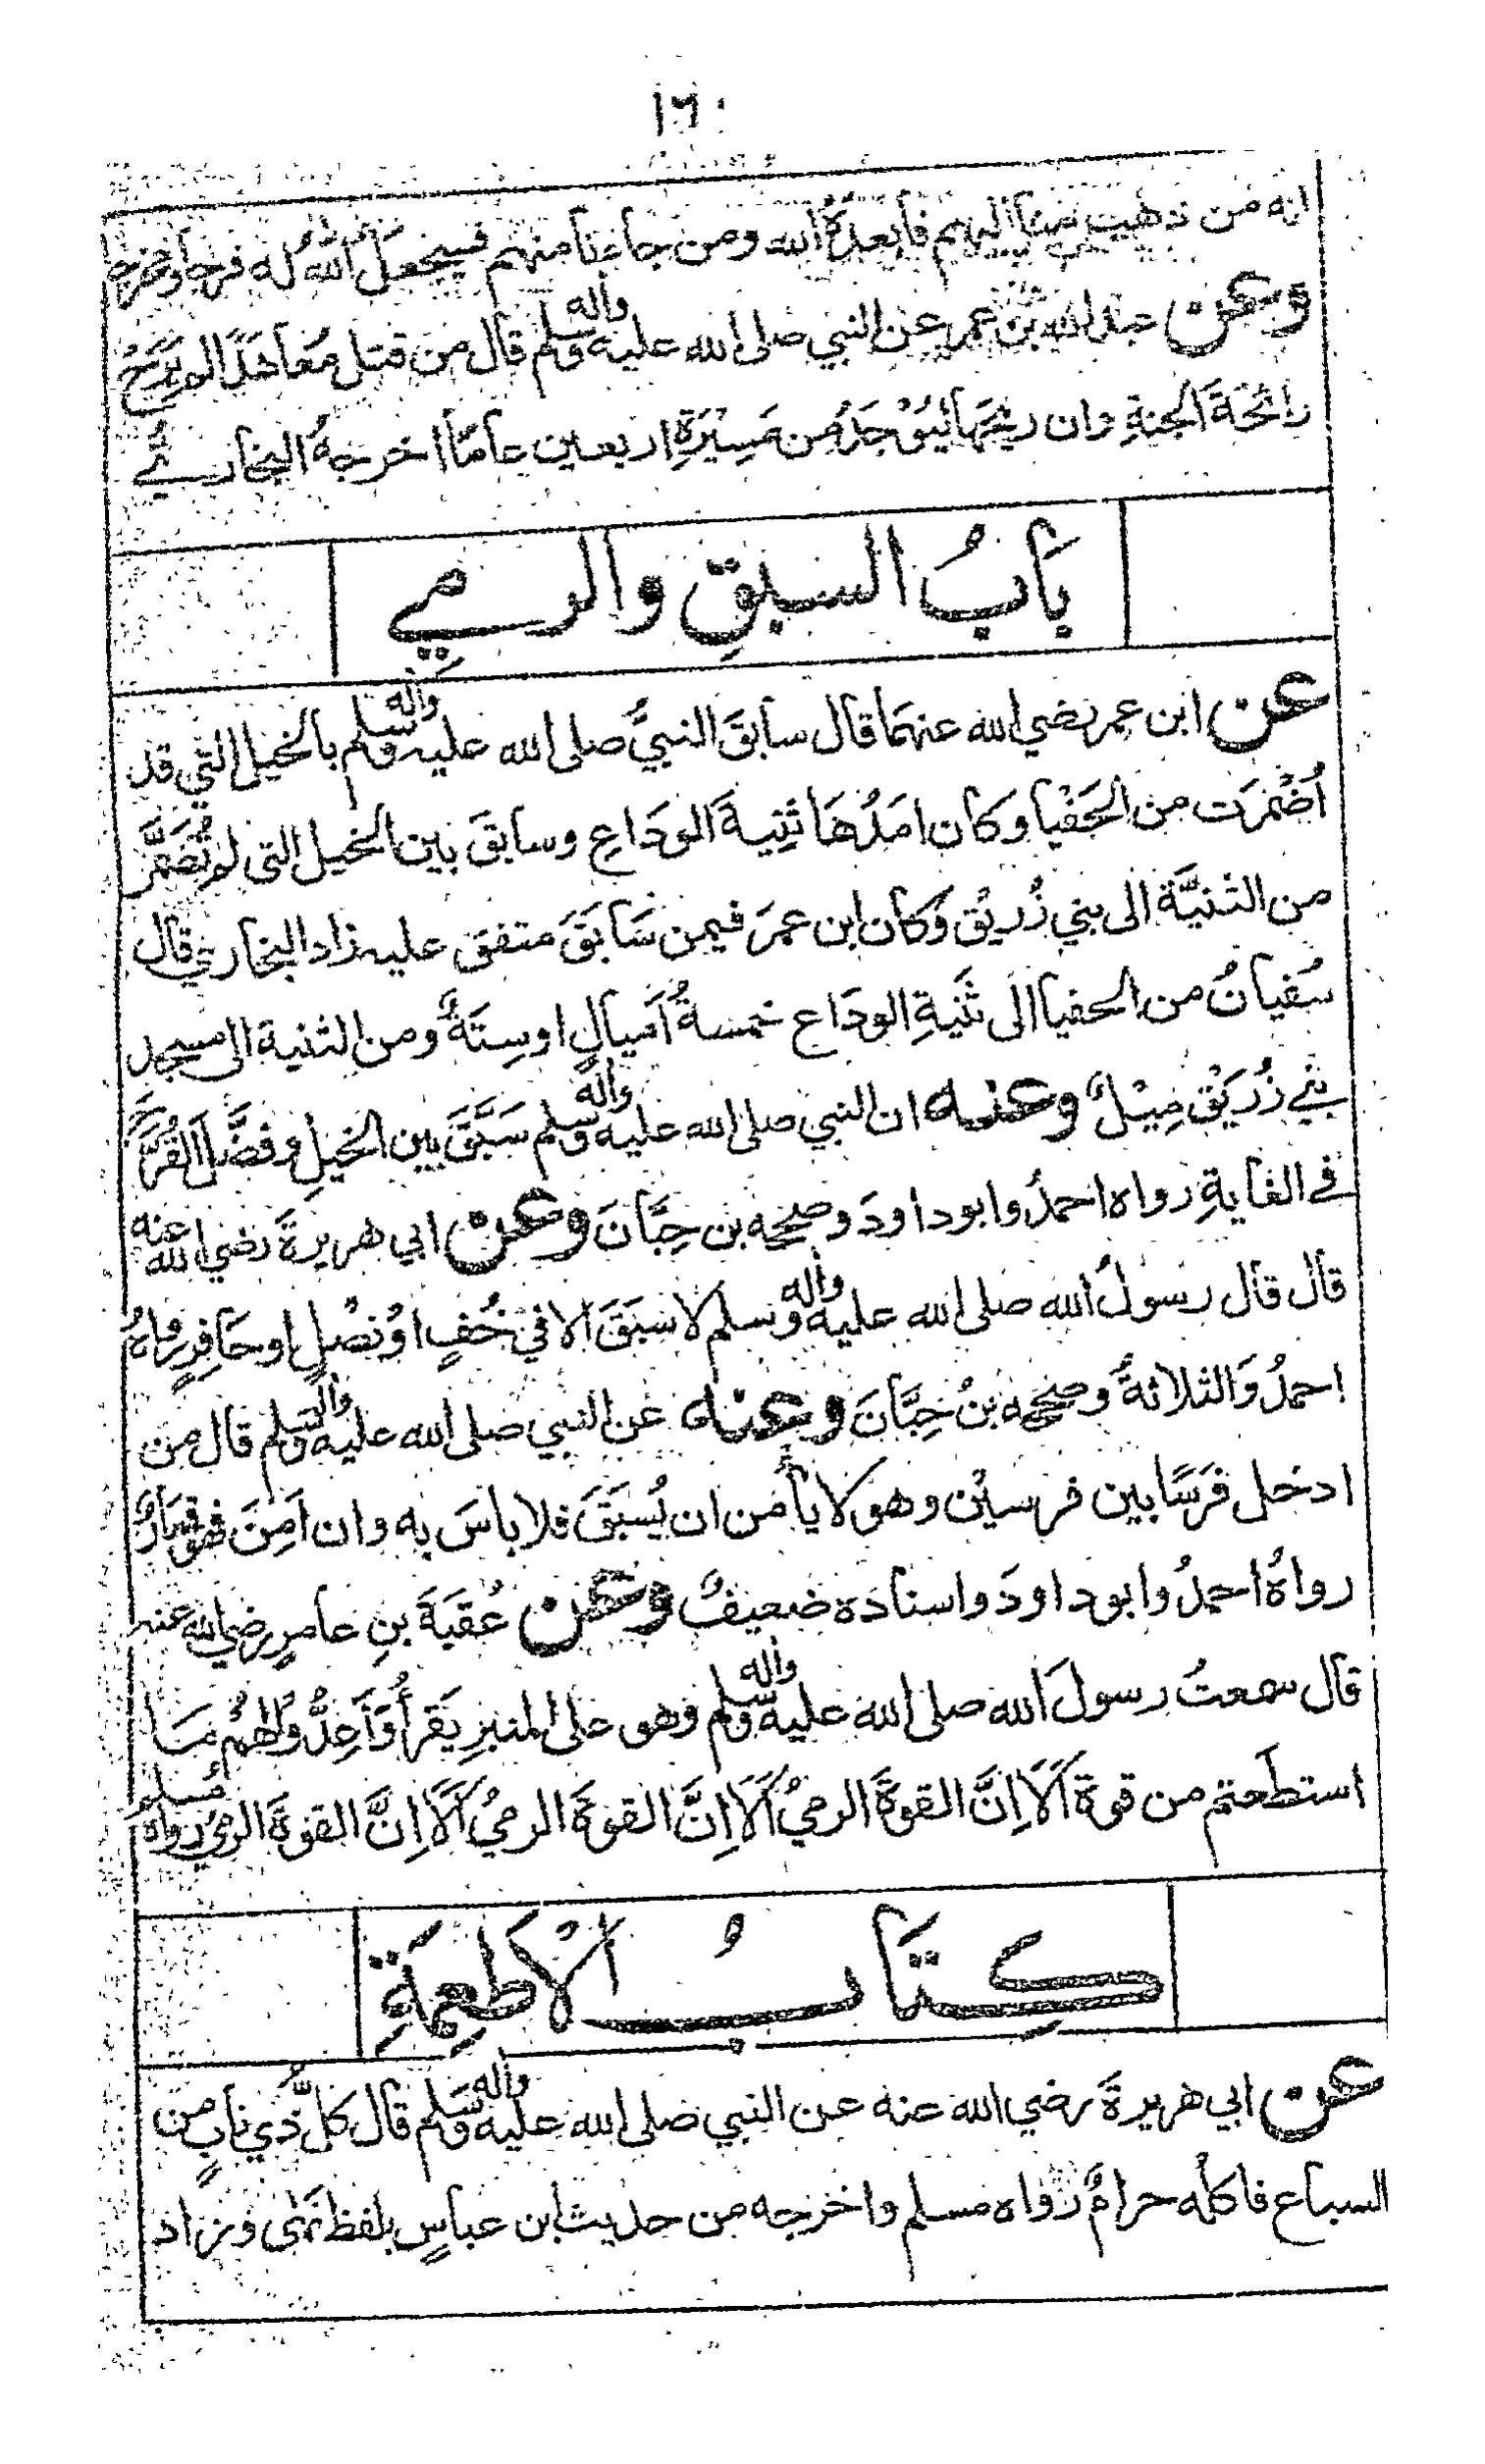 ١٦٠
انه من ذهب منا اليهم فابعدَهُ الله ومن جاءنا منهم فسيجعلُ اللهُ له فرجا ومخرجا
وعن عبد الله بن عمر عن النبي صلى الله عليه وأله وسلم قال من قتل مُعَاهَدًا لم يَرَحْ
رائحةَ الجنةِ وان ريحَهَا لَيُوْجَدُ من مَسِيْرَةِ اربعين عامًا اخرجهُ البخاريُ
بَابُ السبقِ والرميِ
عن ابن عمر رضي الله عنهمَا قال سابقَ النبيُّ صلى الله عليه وأله وسلم بالخيل التي قد
اُضْمِرَت من الحَفْيا وكان امَدُهَا ثَنِيةَ الوَدَاعِ وسابقَ بين الخيل التي لم تُضَمَّرْ
من الثنيَّة الى بني زُرَيْق وَكان ابن عمرَ فيمن سَابَقَ متفق عليه زاد البخاري قال
سُفيانُ من الحفيا الى ثَنيةِ الودَاع خمسةُ اَميالٍ اوسِتَةٌ ومن الثنية الى مسجد
بني زُرَيْق مِيْلٌ وعنه ان النبي صلى الله عليه وأله وسلم سَبَّقَ بين الخيلِ وفضَّلَ القُرَّحَ
في الغايةِ رواه احمدُ وابو داودَ وصححه بن حِبَّانَ وعن ابي هريرةَ رضي الله عنه
قال قال رسولُ الله صلى الله عليه وأله وسلم لا سَبَقَ الا في خُفٍ اوْ نصْلٍ او حَافِرٍ رواهُ
احمدُ وَالثلاثةُ وصححه بنُ حِبَّانَ وعنه عن النبي صلى الله عليه وأله وسلم قال من
ادخل فرَسًا بين فرسيْن وهو لا يأمن ان يُسْبَقَ فلا باسَ به وان اَمِنَ فهو قِمَارٌ
رواهُ احمدُ وابو داودَ واسنادَه ضعيفٌ وعن عُقبَةَ بنِ عامرٍ رضي الله عنه
قال سمعتُ رسولَ الله صلى الله عليه وأله وسلم وهو على المنبرِ يَقرأُ وَاَعِدُّوْا لهمْ مَا
استطَعتم من قوة اَلَا اِنَّ القوةَ الرميُ اَلَا اِنَّ القوةَ الرميُ اَلَا اِنَّ القوةَ الرميُ رواهُ مُسلم
كِتَابُ الْاَطعِمَةِ
عن ابي هريرةَ رضي الله عنه عن النبي صلى الله عليه وأله وسلم قال كلُّ ذي نابٍ من
السباع فاكلُه حرامٌ رواه مسلم واخرجه من حديث ابن عباسٍ بلفظ نَهَى وزاد